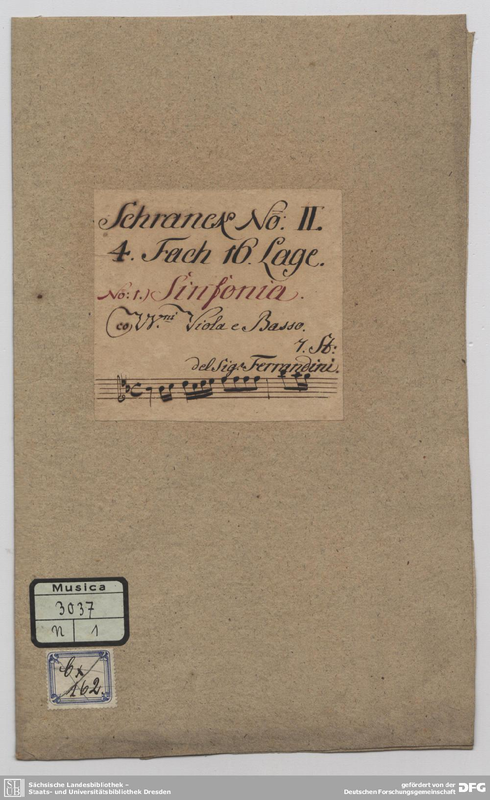 Schranck No: II.
4. Fach 16. Lage.
No: 1.) Sinfonia.
Co VV.ni Viola e Basso.
7. St:
del Sig.r Ferrandini.
Musica
3037
N 1
162.
Sächsische Landesbibliothek –
Staats- und Universitätsbibliothek Dresden
gefördert von der
Deutschen Forschungsgemeinschaft
DFG